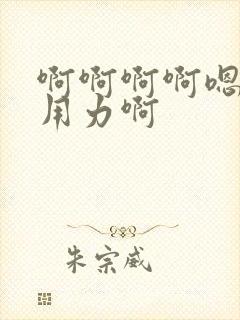 啊啊啊啊嗯
用力啊
朱宗威